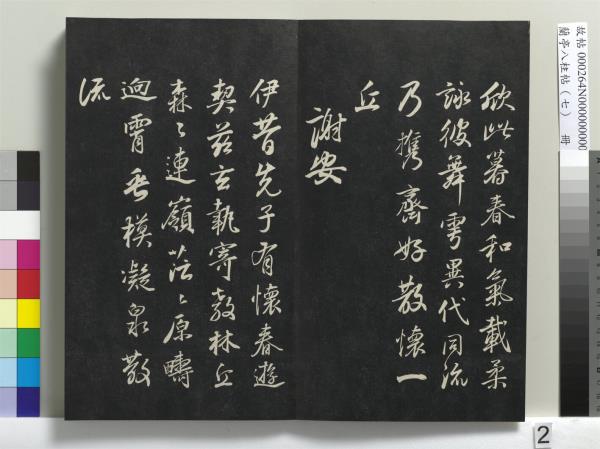 故帖 000264N000000000
蘭亭八柱帖（七） 冊
欣此暮春和氣載柔
詠彼舞雩異代同流
乃攜齊好散懷一
丘
謝安
伊昔先子有懷春遊
契茲言執寄敖林丘
森〻連嶺茫〻原疇
逈霄垂模凝泉散
流
2